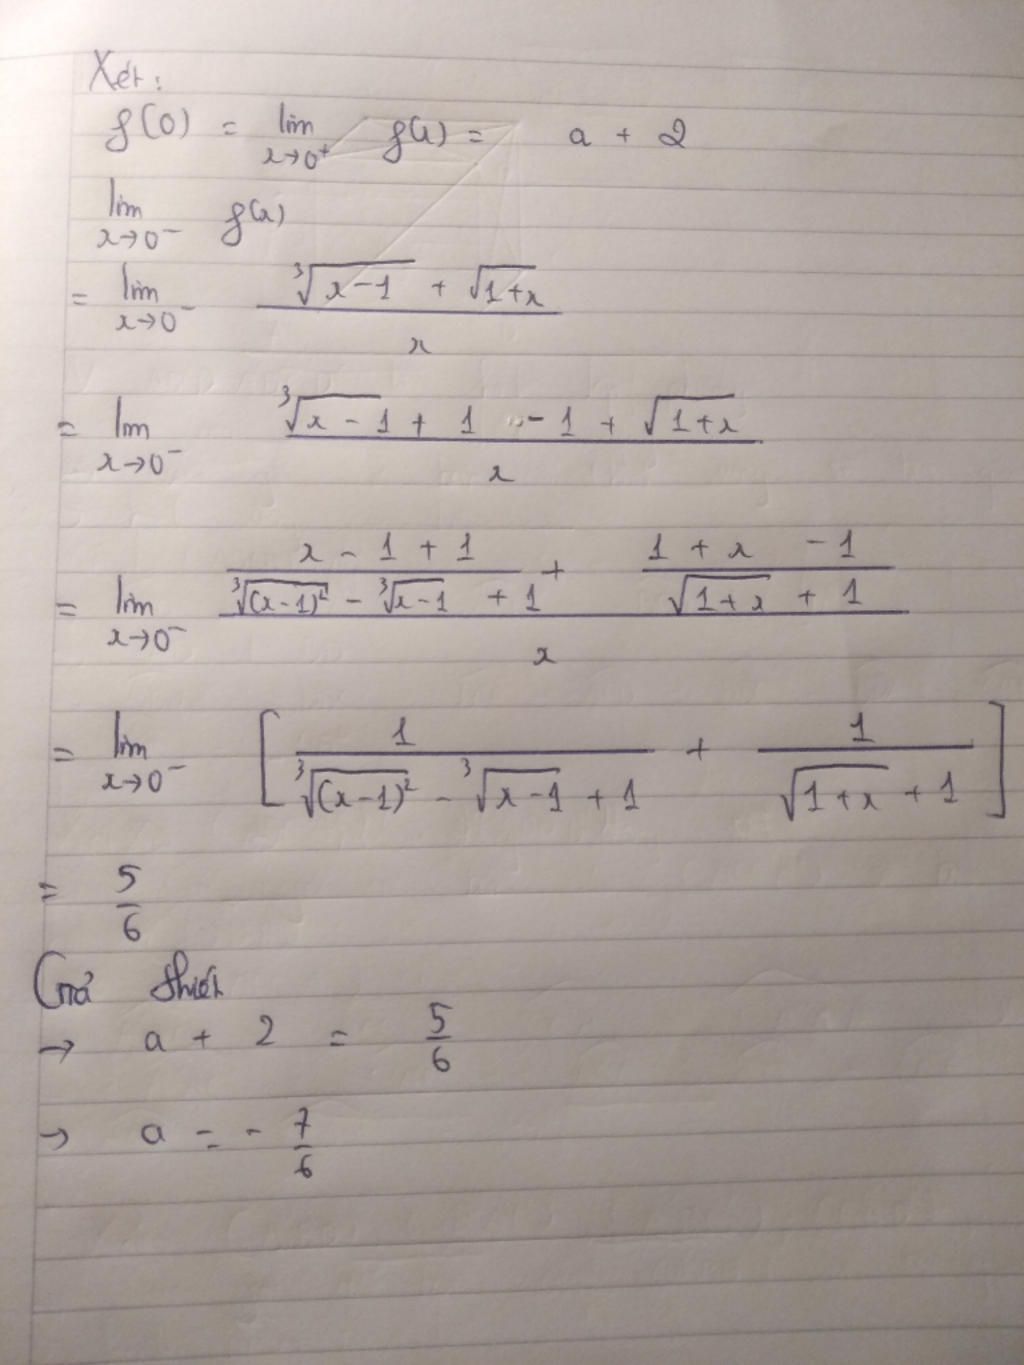 Xét:
f(0) = lim x→0⁺ f(x) = a + 2
lim x→0⁻ f(x)
= lim x→0⁻ (∛(x-1) + √(1+x)) / x
= lim x→0⁻ (∛(x-1) + 1 - 1 + √(1+x)) / x
= lim x→0⁻ ((x-1+1)/(∛(x-1)² - ∛(x-1) + 1) + (1+x-1)/(√(1+x) + 1)) / x
= lim x→0⁻ [1/(∛(x-1)² - ∛(x-1) + 1) + 1/(√(1+x) + 1)]
= 5/6
Giả thiết
→ a + 2 = 5/6
→ a = - 7/6